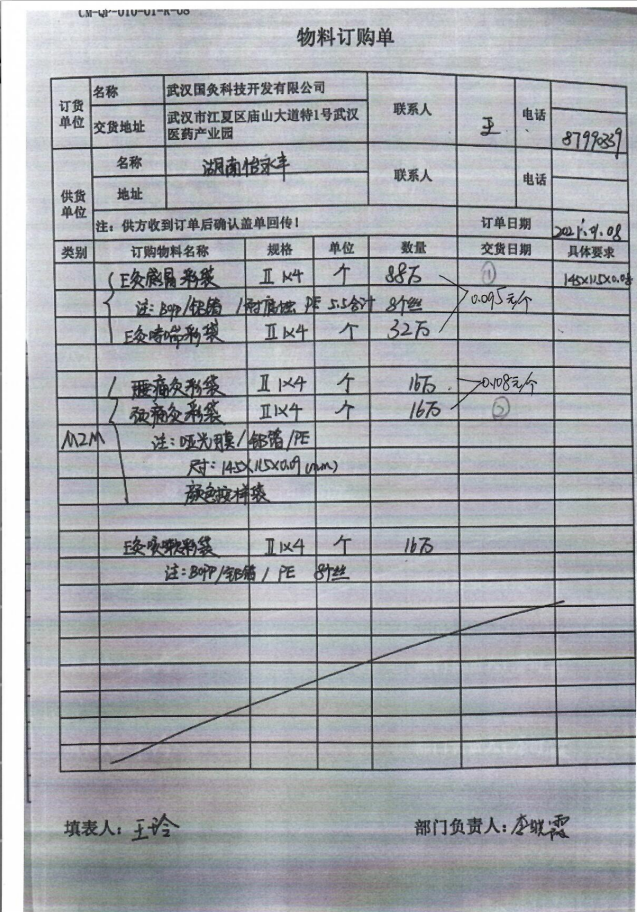 CM-QP-010-01-R-08
物料订购单
订货单位 名称 武汉国灸科技开发有限公司 联系人 王 电话 87990339
交货地址 武汉市江夏区庙山大道特1号武汉医药产业园
供货单位 名称 湖南怡永丰 联系人 电话
地址
注:供方收到订单后确认盖单回传! 订单日期 2021.9.08
类别 订购物料名称 规格 单位 数量 交货日期 具体要求
E灸感冒彩袋 Ⅱ1×4 个 88万 ① 145×115×0.08
注:BOPP/铝箔/耐腐蚀 PE 5.5合计 8个丝 0.095元/个
E灸哮喘彩袋 Ⅱ1×4 个 32万
腰痛灸彩袋 Ⅱ1×4 个 16万 0.108元/个
颈痛灸彩袋 Ⅱ1×4 个 16万 ②
M2M 注:哑光膜/铝箔/PE
尺寸:145×115×0.09(mm)
颜色按样袋
E灸咳嗽彩袋 Ⅱ1×4 个 16万
注:BOPP/铝箔/PE 8个丝
填表人:王玲 部门负责人:李晓霞